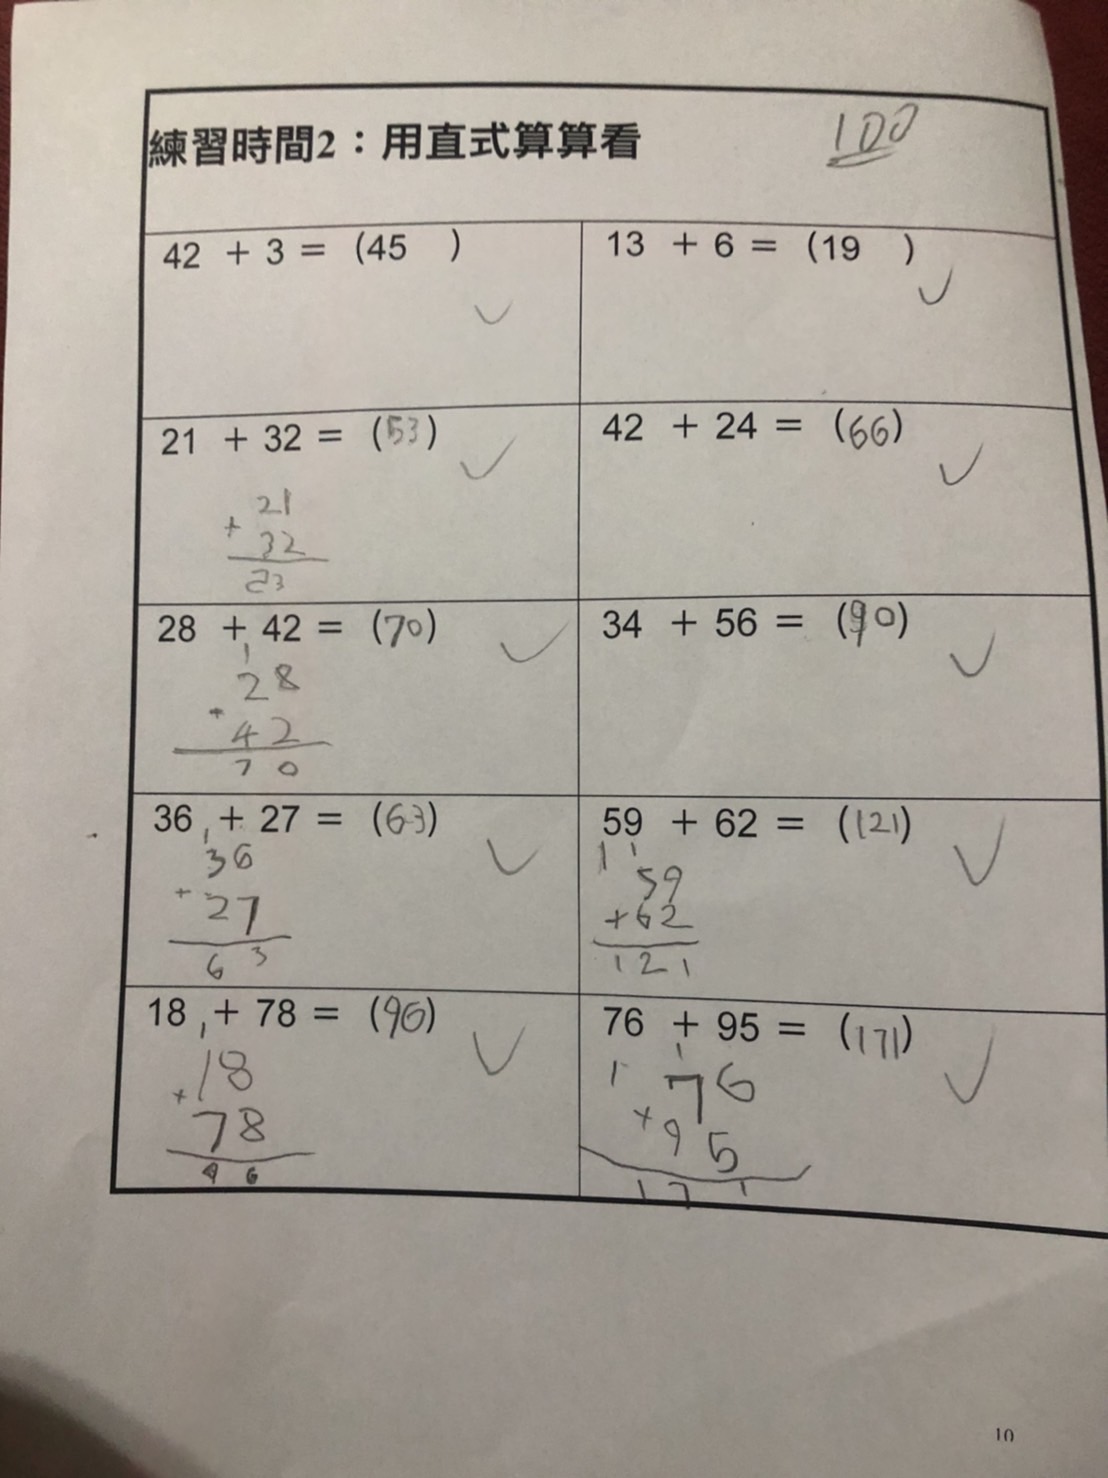 練習時間2：用直式算算看
100
42 + 3 = (45 )
13 + 6 = (19 )
21 + 32 = (53)
21
+ 32
23
42 + 24 = (66)
28 + 42 = (70)
1
28
+ 42
70
34 + 56 = (90)
36 + 27 = (63)
1
36
+ 27
63
59 + 62 = (121)
1 1
59
+62
121
18 + 78 = (96)
1
18
+ 78
96
76 + 95 = (171)
1 1
76
+ 95
171
10